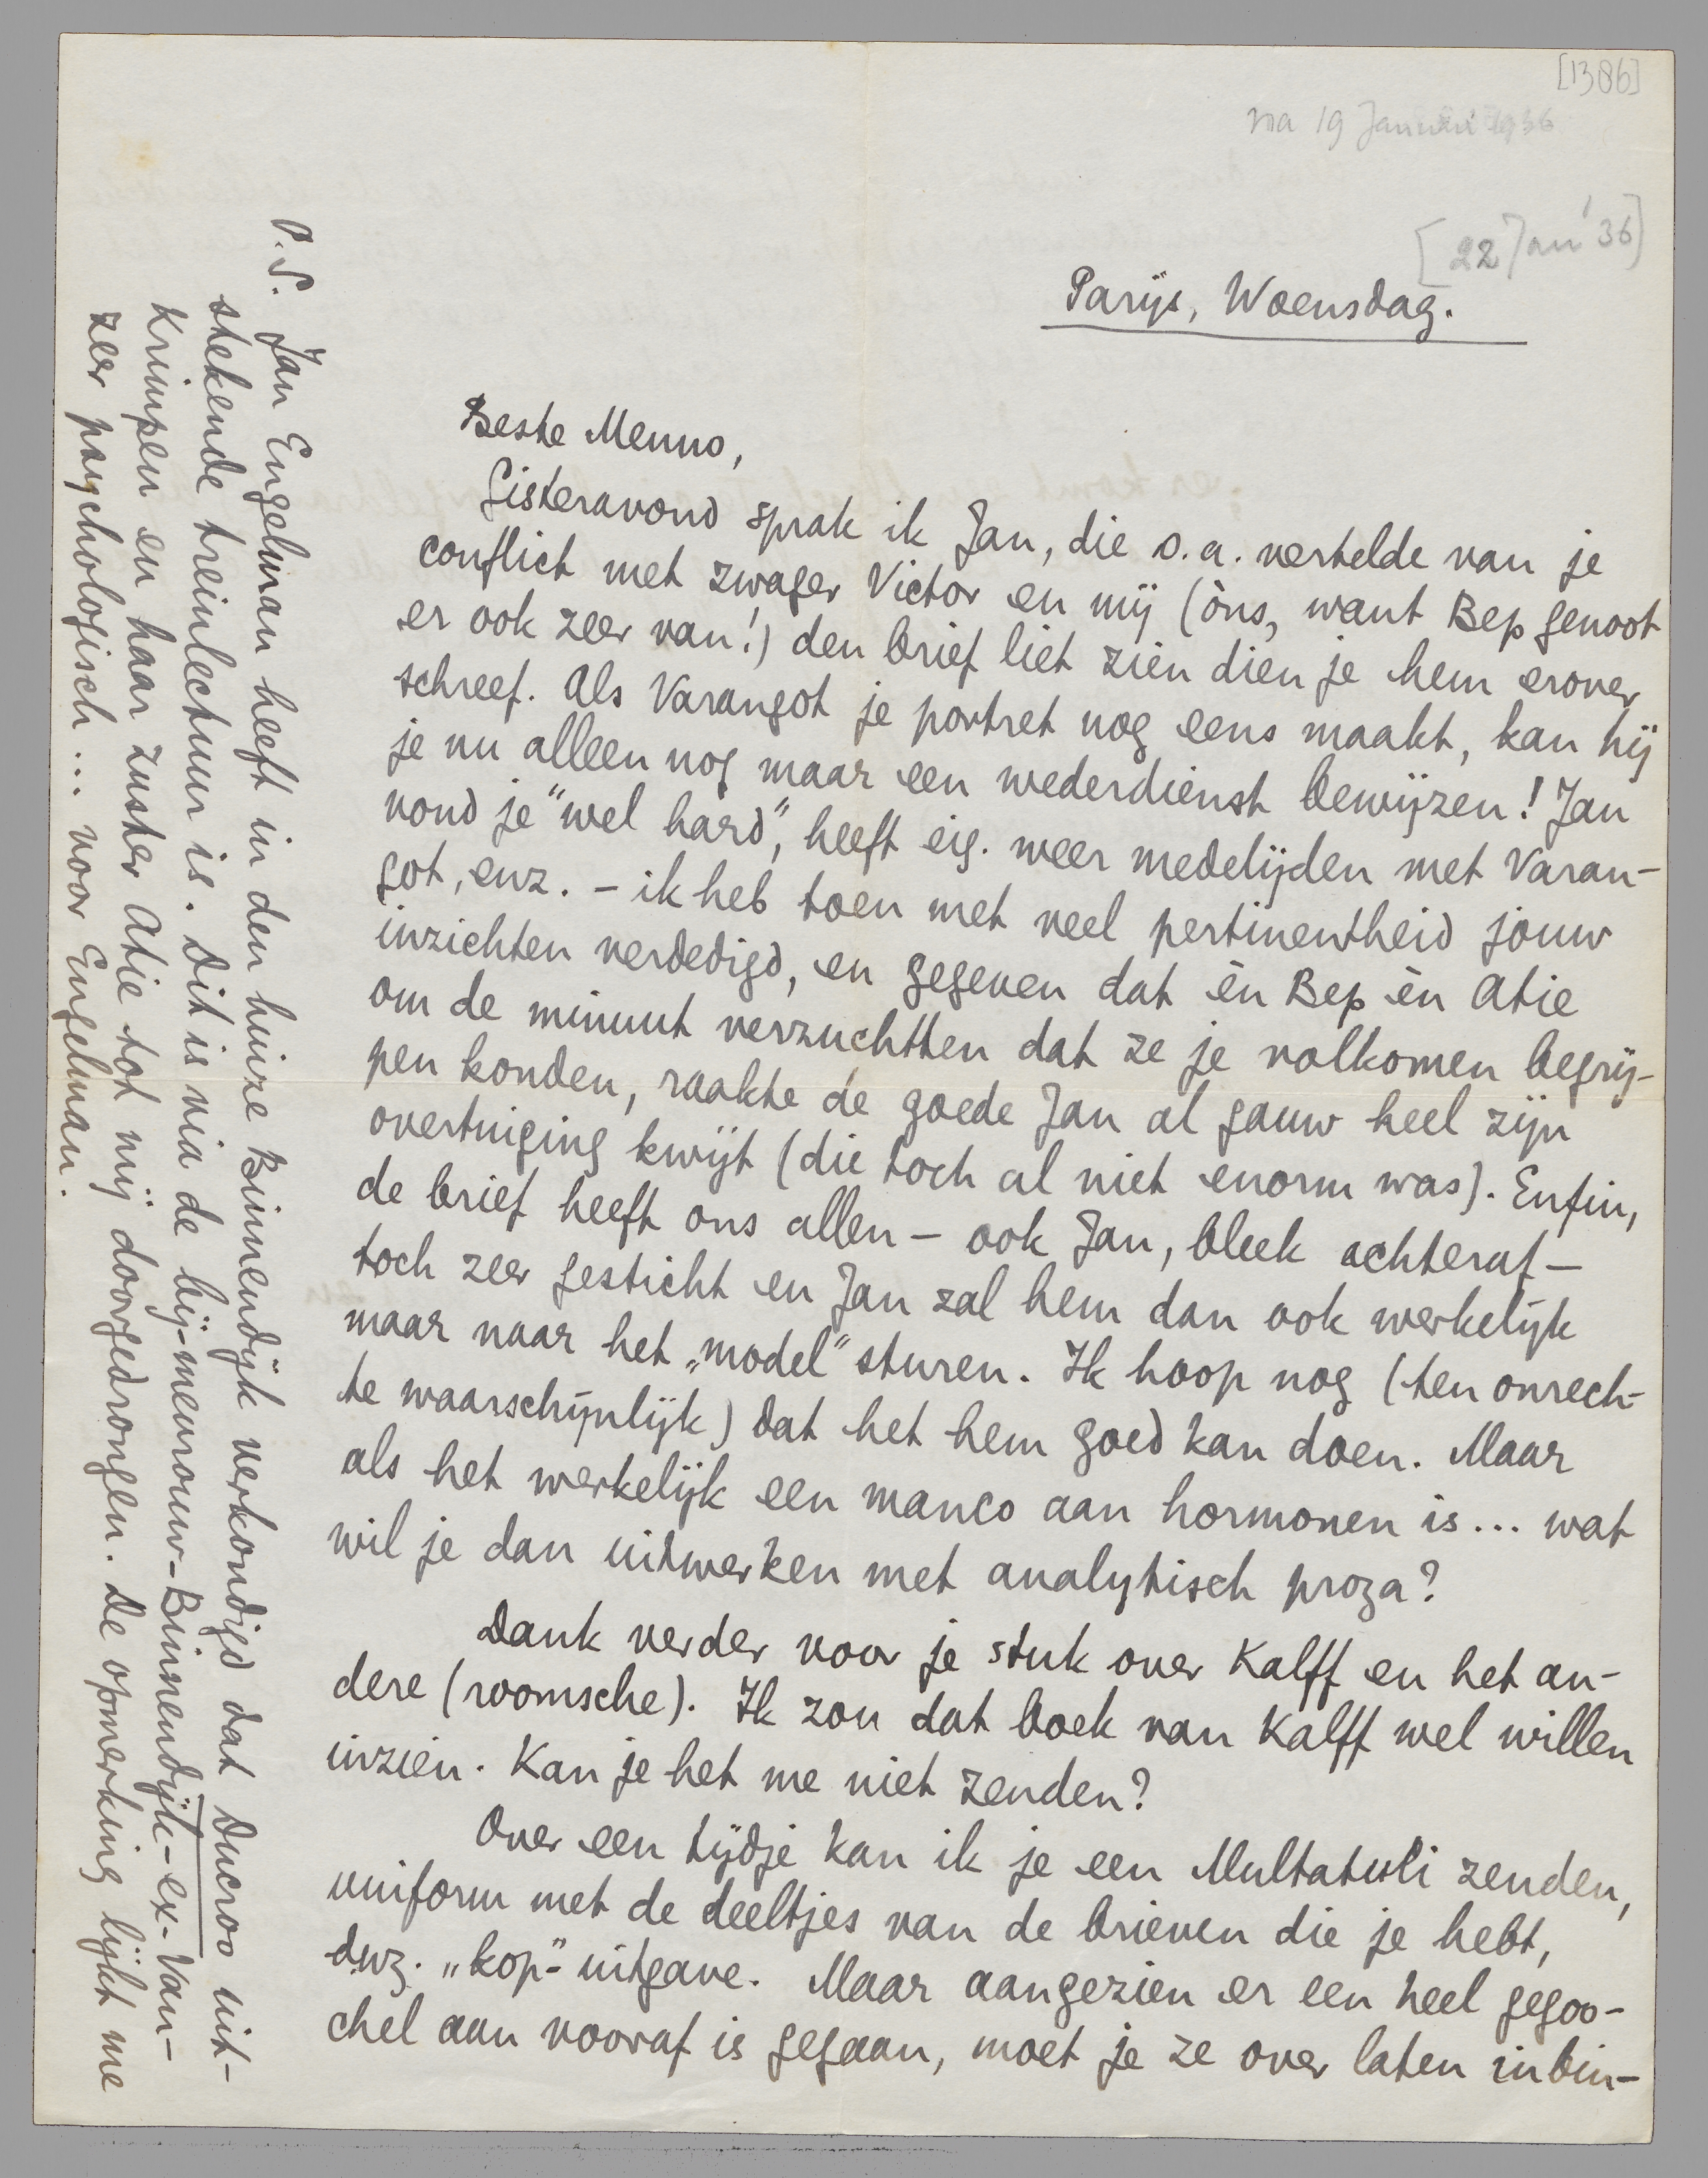 [1386]
na 19 Januari 1936
[22 Jan '36]
Parijs, Woensdag.
Beste Menno,
Gisteravond sprak ik Jan, die o.a. vertelde van je
conflict met zwager Victor en mij (òns, want Bep genoot
er ook zeer van!) den brief liet zien dien je hem erover
schreef. Als Varangot je portret nog eens maakt, kan hij
je nu alleen nog maar een wederdienst bewijzen! Jan
vond je "wel hard", heeft eig. weer medelijden met Varan-
got, enz. – ik heb toen met veel pertinentheid jouw
inzichten verdedigd, en gegeven dat èn Bep èn Atie
om de minuut verzuchtten dat ze je volkomen begrij-
pen konden, raakte de goede Jan al gauw heel zijn
overtuiging kwijt (die toch al niet enorm was). Enfin,
de brief heeft ons allen – ook Jan, bleek achteraf –
toch zeer gesticht en Jan zal hem dan ook werkelijk
maar naar het „model" sturen. Ik hoop nog (ten onrech-
te waarschijnlijk) dat het hem goed kan doen. Maar
als het werkelijk een manco aan hormonen is... wat
wil je dan uitwerken met analytisch proza?
Dank verder voor je stuk over Kalff en het an-
dere (roomsche). Ik zou dat boek van Kalff wel willen
inzien. Kan je het me niet zenden?
Over een tijdje kan ik je een Multatuli zenden,
uniform met de deeltjes van de brieven die je hebt,
dwz. „kop"-uitgave. Maar aangezien er een heel gegoo-
chel aan vooraf is gegaan, moet je ze over laten inbin-
P.S. Jan Engelman heeft in den huize Binnendijk verkondigd dat Ducroo uit-
stekende treinlectuur is. Dit is via de bij-mevrouw-Binnendijk-ex-Van-
Krimpen en haar zuster Atie tot mij doorgedrongen. De opmerking lijkt me
zeer psychologisch... voor Engelman.